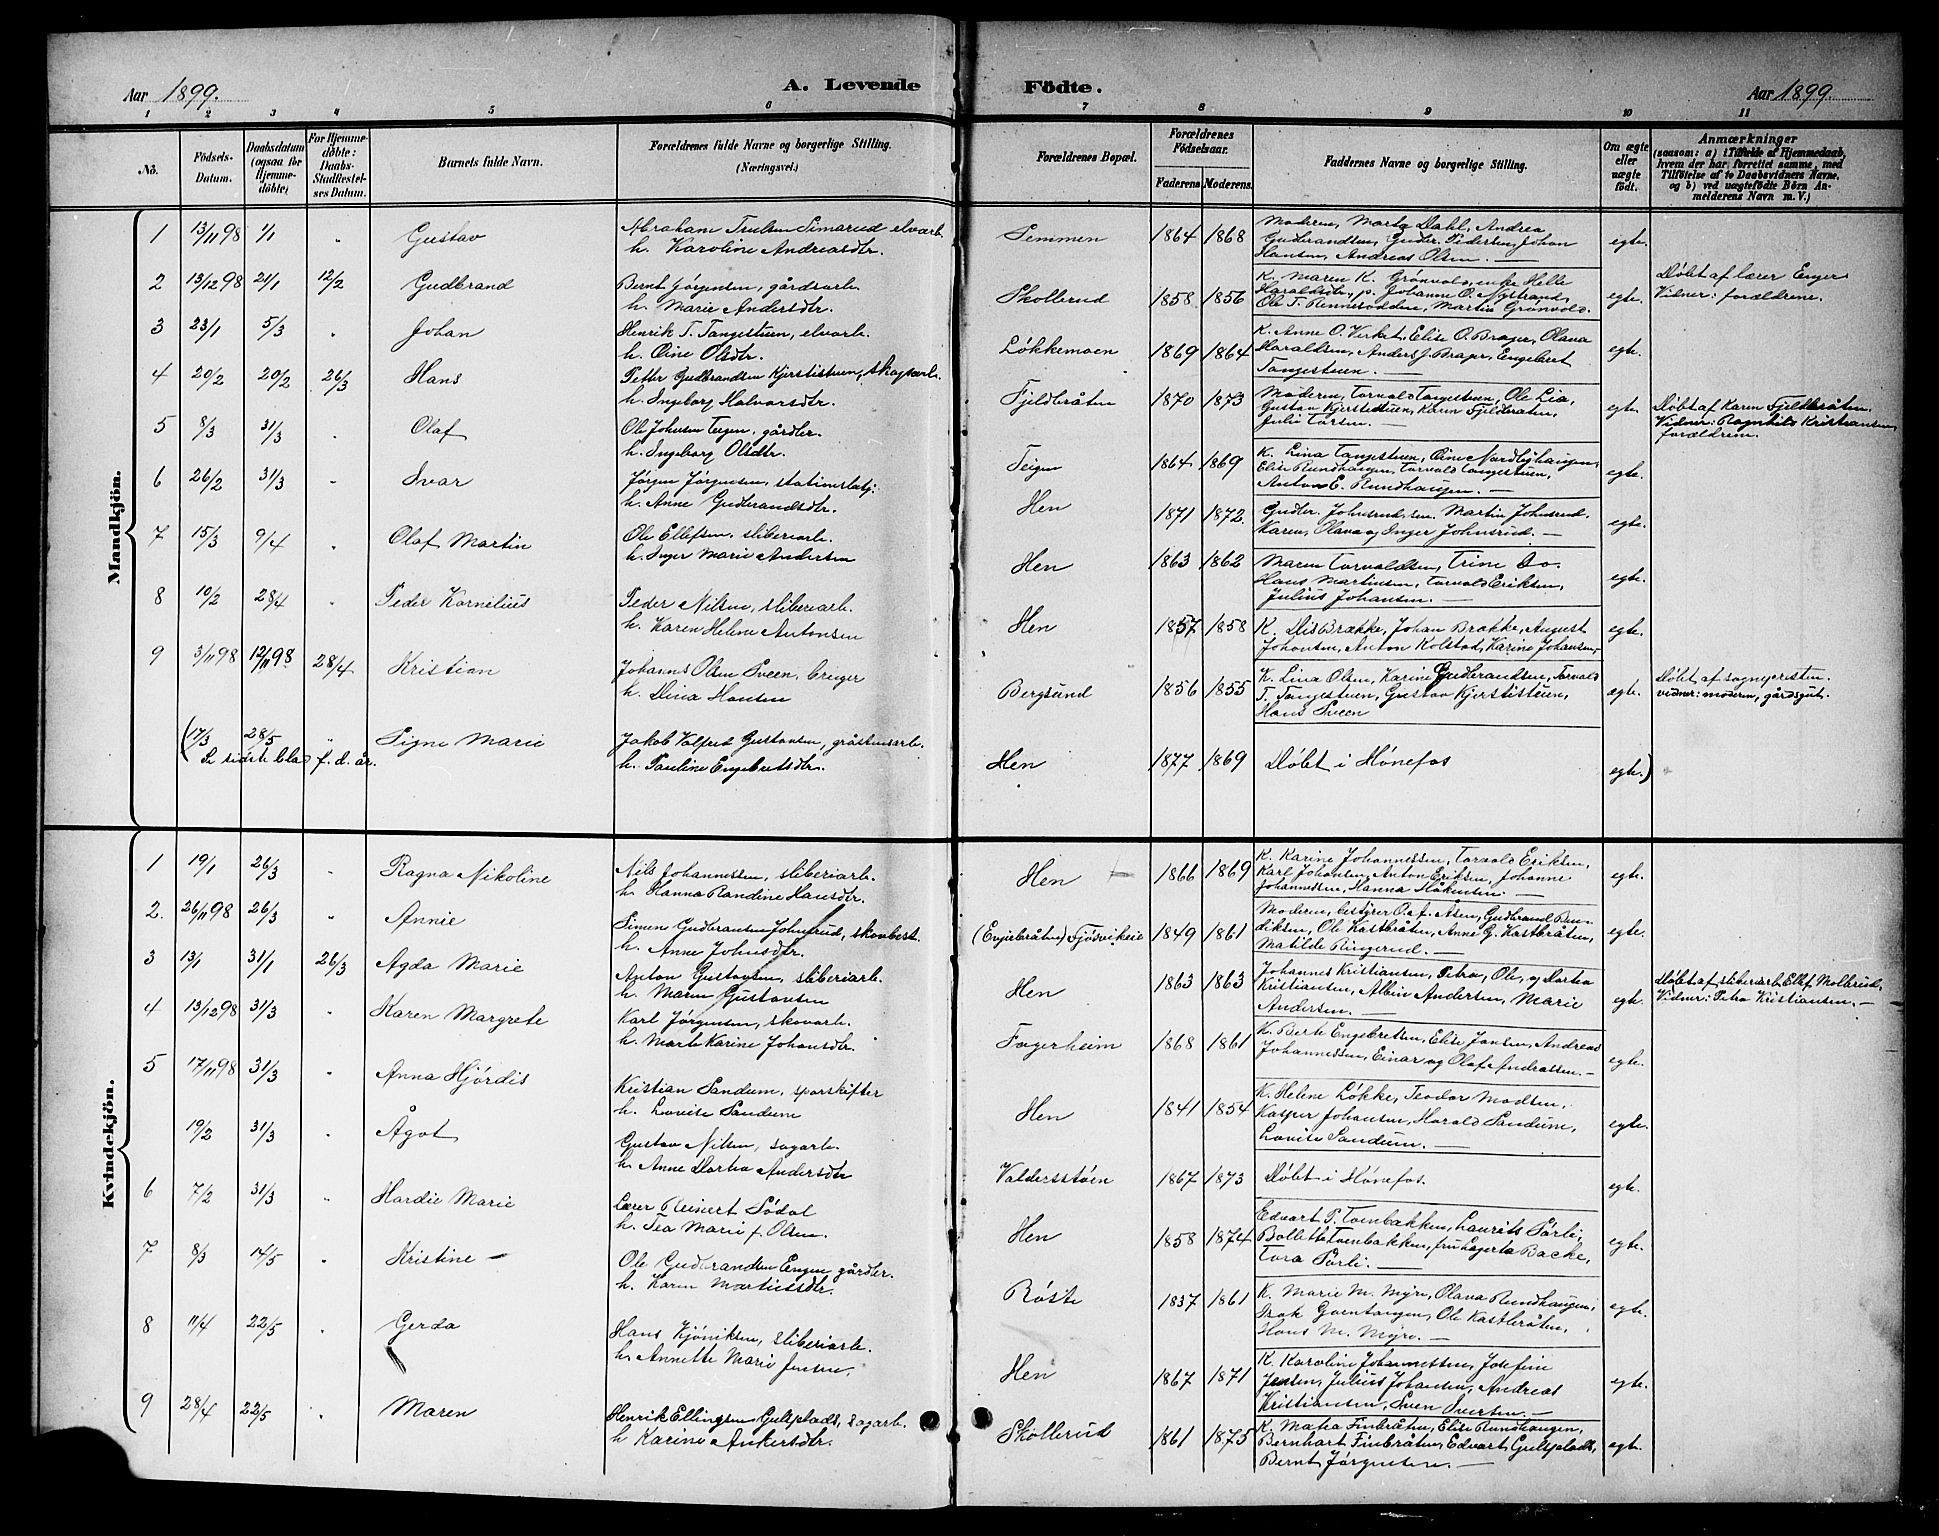 Aar 1899.
A. Levende
Födte.
Aar 1899.
1 2 3 4 5 6 7 8 9 10 11
No.
Födsels-Datum.
Daabsdatum (ogsaa for Hjemmedöbte)
For Hjemmedöbte: Daabs-Stadfæstelses Datum.
Barnets fulde Navn.
Forældrenes fulde Navne og borgerlige Stilling.
(Næringsvei.)
Forældrenes Bopæl.
Forældrenes Födselsaar.
Faderens
Moderens.
Faddernes Navne og borgerlige Stilling.
Om ægte eller uægte födt.
Anmærkninger
(saasom: a) i Tilfælde af Hjemmedaab,
hvem der har forrettet samme, med
Tilföielse af to Daabsvidners Navne,
og b) ved uægtefödte Börn An-
melderens Navn m. V.)
Mandkjön.
1 13/11 98 1/1 " Gustav
Abraham Trulsen Simarud elvarb.
h. Karoline Andreasdtr.
Semmen 1864 1868
Moderen, Marta Dahl, Andrea
Gudbrandsen, Gudbr. Pedersen, Johan
Hansen, Andreas Olsen. —
egte.
2 13/12 98 21/1 12/2 Gudbrand
Bernt Jørgensen, gårdsarb.
h. Marie Andersdtr.
Skollerud 1858 1856
K. Maren K. Grønvold, enke Helle
Haraldsdtr, p. Johanne O. Nystrand,
Ole T. Rennesodden, Martin Grønvold.
egte.
Døbt af lærer Enger
Vidner: forældrene.
3 23/1 5/3 " Johan
Henrik T. Tangestuen, elvarb.
h. Oine Olsdtr.
Løkkemoen 1869 1864
K. Anne O. Virket, Elise O. Brager, Olava
Haraldsen, Anders J. Brager, Engebret
Tangestuen. —
egte.
4 20/2 20/2 26/3 Hans
Petter Gudbrandsen Kjerstistuen, skogsarb.
h. Ingeborg Halvorsdtr.
Fjeldbråten 1870 1873
Moderen, Torvald Tangestuen, Ole Lia,
Gustav Kjerstistuen, Karen Fjeldbråten,
Julie Larsen. —
egte.
Døbt af Karen Fjeldbråten.
Vidner: Ragnhild Kristiansen,
forældren.
5 8/3 31/3 " Olaf
Ole Johnsen Teigen, gårdbr.
h. Ingeborg Olsdtr.
Teigen 1864 1869
K. Lina Tangestuen, Oine Nordbyhaugen,
Elise Rundhaugen, Torvald Tangestuen,
Anton E. Rundhaugen. —
egte.
6 26/2 31/3 " Ivar
Jørgen Jørgensen, stationsbetj.
h. Anne Gudbrandsdtr.
Hen 1871 1872
Gudbr. Johnsrud, sen. Martin Johnsrud,
Karen, Olava og Inger Johnsrud. —
egte.
7 15/3 9/4 " Olaf Martin
Ole Ellefsen, sliberiarb.
h. Inger Marie Andersen
Hen 1863 1862
Maren Torvaldsen, Trine Do.
Hans Martinsen, Torvald Eriksen,
Julius Johansen. —
egte.
8 10/2 28/4 " Peder Kornelius
Peder Nilsen, sliberiarb.
h. Karen Helene Antonsen
Hen 1857 1858
K. Dis Brække, Johan Brække, August
Johansen, Anton Kolstad, Karine Johansen. —
egte.
9 3/11 98 12/11 98 28/4 Kristian
Johannes Olsen Sveen, bruger
h. Dina Hansen
Bergsund 1856 1855
K. Lina Olsen, Karine Gudbrandsen, Torvald
T. Tangestuen, Gustav Kjerstistuen,
Hans Sveen
ægte.
Døbt af sognepresten.
vidner: modern, gårdsgut.
(17/3 28/5 " Signe Marie
Se sidste blad f. d. år.
Jakob Valfred Gustavsen, gråstensarb.
h. Pauline Engebretsdtr.
Hen 1877 1869
Døbt i Hønefos
egte.)
Kvindekjön.
1 19/1 26/3 " Ragna Nikoline
Nils Johannessen, sliberiarb.
h. Hanna Randine Hansdtr.
Hen 1866 1869
K. Karine Johannessen, Torvald Eriksen,
Karl Johansen, Anton Eriksen, Johanne
Johannessen, Hanna Håkensen. —
egte.
2. 26/11 98 26/3 " Annie
Simen Gudbransen Johnsrud, skovbest.
h. Anne Johnsdtr.
(Evjebråten) Fjøsvikeie 1849 1861
Moderen, bestyrer O. af. Åsen, Gudbrand Ben-
diksen, Ole Kastbråten, Anne G. Kastbråten,
Matilde Ringerud. —
egte.
3 13/1 31/1 26/3 Agda Marie
Anton Gustavsen, sliberiarb.
h. Maren Gustavsen
Hen 1863 1863
Johannes Kristiansen, Petra, Ole, og Dortea
Kristiansen, Albin Andersen, Marie
Andersen. —
egte.
Døbt af sliberiarb. Ellef Mollerud.
Vidner: Petra Kristiansen. —
4 13/12 98 31/3 " Karen Margrete
Karl Jørgensen, skovarb.
h. Marte Karine Johansdtr.
Fagerheim 1868 1861
K. Berte Engebretsen, Elise Jansen, Andreas
Johannessen, Einar og Olaf Andreassen. —
egte.
5 17/11 98 31/3 " Anna Hjørdis
Kristian Sandum, sporskifter
h. Lovise Sandum
Hen 1841 1854
K. Helene Løkke, Teodor Madsen,
Kasper Johansen, Harald Sandum,
Lovise Sandum. —
egte.
19/2 31/3 " Ågot
Gustav Nilsen, sagarb.
h. Anne Dortea Andersdtr
Valdersstøen 1867 1873
Døbt i Hønefos.
egte.
6 7/2 31/3 " Hardie Marie
Lærer Reinert Sødal
h. Tea Marie f. Olsen.
Hen 1858 1874
Edvart P. Tvenbakken, Laurits Sørli,
Bollette Tvenbakken, fru Lagerta Backe,
Tora Sørli. —
egte.
7 8/3 14/5 " Kristine —
Ole Gudbrandsen Engen gårdbr.
h. Karen Martinsdtr.
Røste 1837 1861
K. Marie M. Myre, Olava Rundhaugen,
Isak Gorntangen, Ole Kastbråten,
Hans M. Myre. —
egte.
8 11/4 22/5 " Gerda
Hans Kjøniksen, sliberiarb.
h. Annette Marie Jensen.
Hen 1867 1871
K. Karoline Johannessen, Josefine
Jensen, Julius Johansen, Andreas
Kristiansen, Sven Iversen. —
egte.
9 28/4 22/5 " Maren
Henrik Ellingsen Gulsplads, sagarb.
h Karine Ankersdtr.
Skollerud 1861 1875
K. Matea Finbråten, Elise Rundhaugen,
Bernhart Finbråten, Edvart Gulsplads,
Bernt Jørgensen. —
egte.